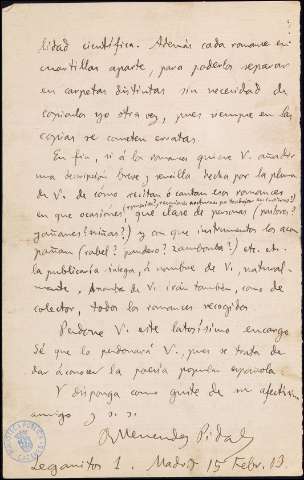 lidad científica. Además cada romance en
cuartillas aparte, para poderlos separar
en carpetas distintas sin necesidad de
copiarlos yo otra vez, pues siempre en las
copias se cometen erratas.
En fin, si á los romances quiere V. añadir
una descripción breve y sencilla hecha por la pluma
de V. de cómo recitan ó cantan esos romances
en que ocasiones, que clase de personas (pastores?
gañanes? niñas?) y con que instrumentos los acom
pañan (rabel? pandero? zambomba?) etc. etc.
la publicaría íntegra, á nombre de V. natural-
mente, á nombre de V. irán también, como de
colector, todos los romances recogidos.
Perdone V. este latosísimo encargo
Sé que lo perdonará V., pues se trata de
dar á conocer la poesía popular española
Y disponga como guste de su afectísimo
amigo y s. s.
R Menéndez Pidal
Leganitos 1. Madrid 15 Febr. 13